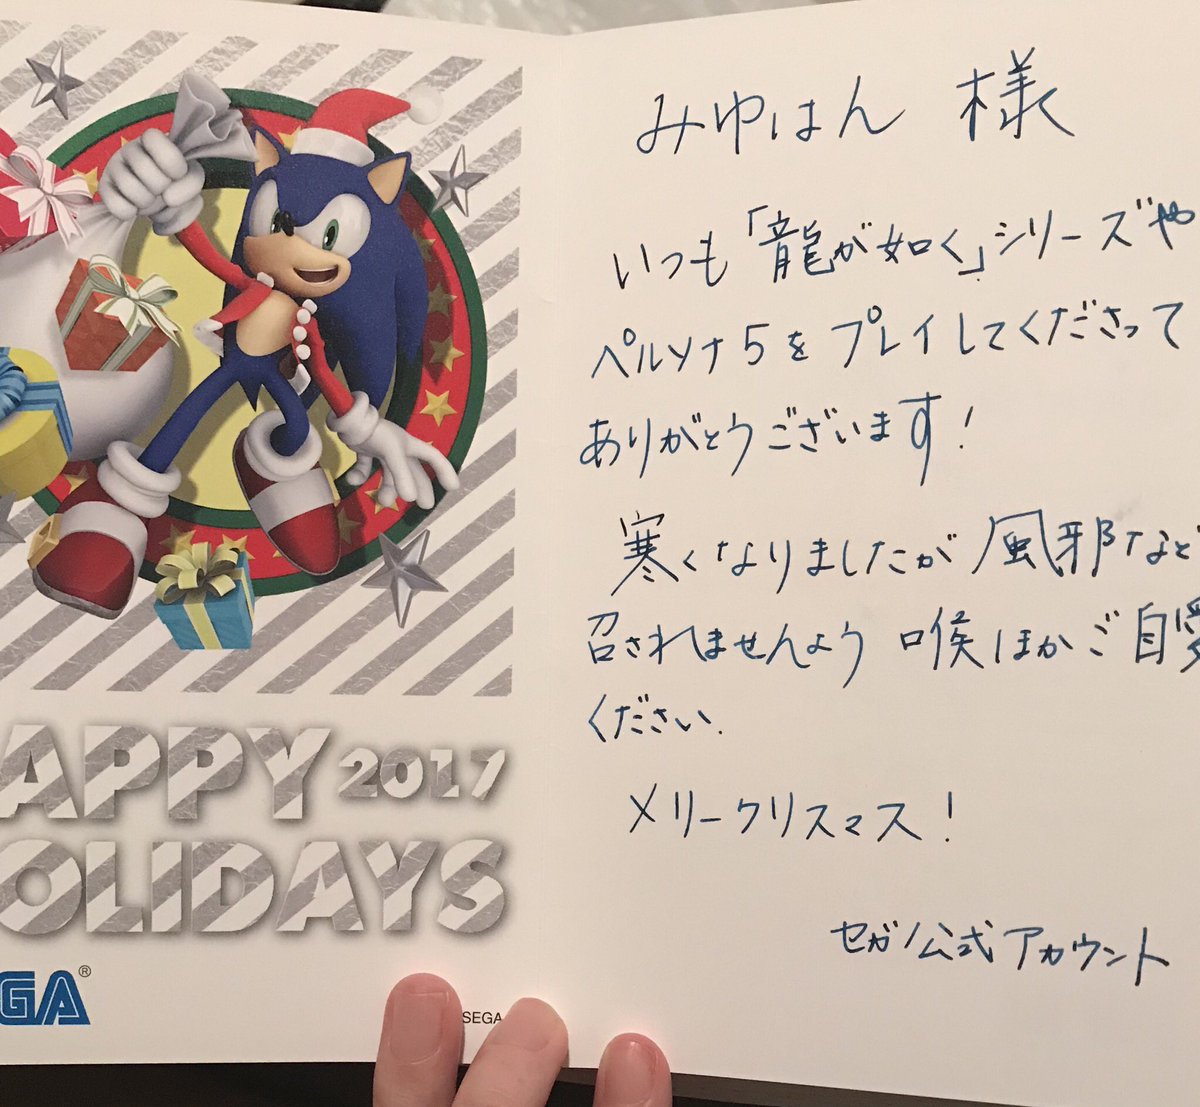 APPY 2017
OLIDAYS
GA®
SEGA
みゆはん 様
いつも「龍が如く」シリーズや
ペルソナ5をプレイしてくださって
ありがとうございます!
寒くなりましたが 風邪など
召されませんよう 喉ほかご自愛
ください.
メリークリスマス!
セガ公式アカウント